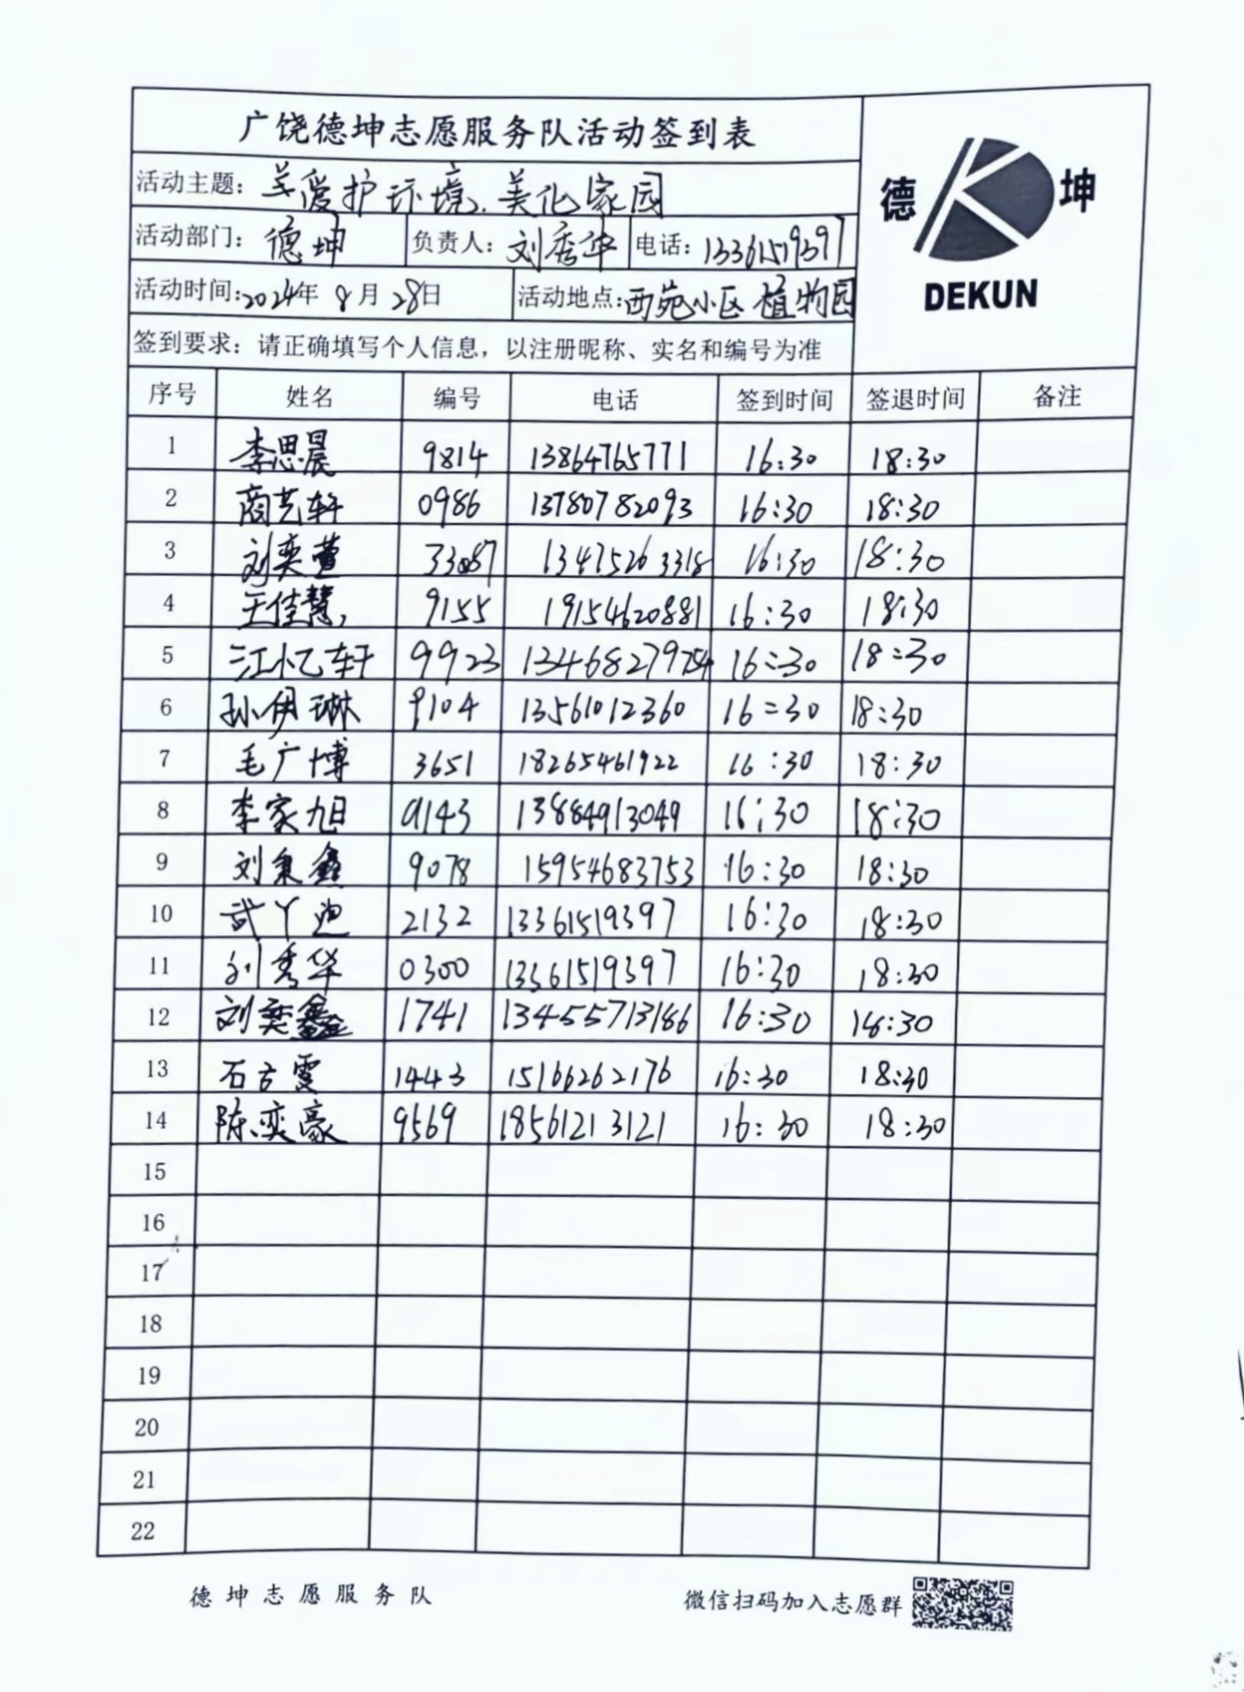 广饶德坤志愿服务队活动签到表
活动主题：关爱护环境、美化家园
活动部门：德坤 负责人：刘秀华 电话：13361519397
活动时间：2024年8月28日 活动地点：西苑小区植物园
签到要求：请正确填写个人信息，以注册昵称、实名和编号为准
德 坤
DEKUN
序号 姓名 编号 电话 签到时间 签退时间 备注
1 李思晨 9814 13864765771 16:30 18:30
2 商艺轩 0986 13780782093 16:30 18:30
3 刘奕萱 33087 13475263318 16:30 18:30
4 王佳慧 9155 19154620881 16:30 18:30
5 江忆轩 9923 13468279754 16:30 18:30
6 孙伊琳 9104 13561012360 16:30 18:30
7 毛广博 3651 18265461922 16:30 18:30
8 李家旭 9143 13884913049 16:30 18:30
9 刘秉鑫 9078 15954683753 16:30 18:30
10 武丫迪 2132 13361519397 16:30 18:30
11 刘秀华 0300 13361519397 16:30 18:30
12 刘奕鑫 1741 13455713186 16:30 18:30
13 石方雯 1443 15166262176 16:30 18:30
14 陈奕豪 9569 18561213121 16:30 18:30
15
16
17
18
19
20
21
22
德坤志愿服务队 微信扫码加入志愿群